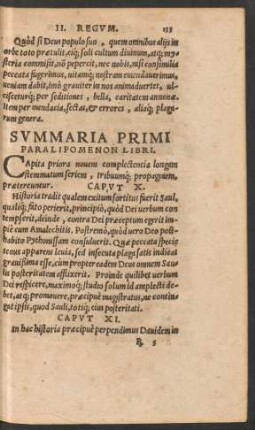 II. REGVM.
Quòd si Deus populo suo, quem omnibus alijs in
orbe toto prætulit, eiq́; soli cultum diuinum, atq; my-
steria commisit, nõ pepercit, nec nobis, nisi consimilia
peccata fugerimus, uitamq́; nostram emendauerimus,
ueniam dabit, imò grauiter in nos animaduertet, ul-
cisceturq́; per seditiones, bella, caritatem annonæ,
item per mendacia, sectas, & errores, aliaq́; plaga-
rum genera.
SVMMARIA PRIMI
PARALIPOMENON LIBRI.
Capita priora nouem complectentia longam
stemmatum seriem, tribuumq́; propaginem,
prætereuntur.
CAPVT X.
Historia tradit qualem exitum sortitus fuerit Saul,
qualiq́; fato perierit, principiò, quòd Dei uerbum con
tempserit, deinde, contra Dei præceptum egerit impiè
cum Amalechitis. Postremò, quòd uero Deo post-
habito Pythonissam consuluerit. Quæ peccata specie
tenus apparent leuia, sed insecuta plagæ satis indicat
grauissima esse, cum propter eadem Deus omnem Sau-
lis posteritatem afflixerit. Proinde quilibet uerbum
Dei respicere, maximoq́; studio solum id amplecti de-
bet, atq; promouere, præcipuè magistratus, ne contin
gat ipsis, quod Sauli, totiq́; eius posteritati.
CAPVT XI.
In hac historia præcipuè perpendimus Dauidem in
R 5